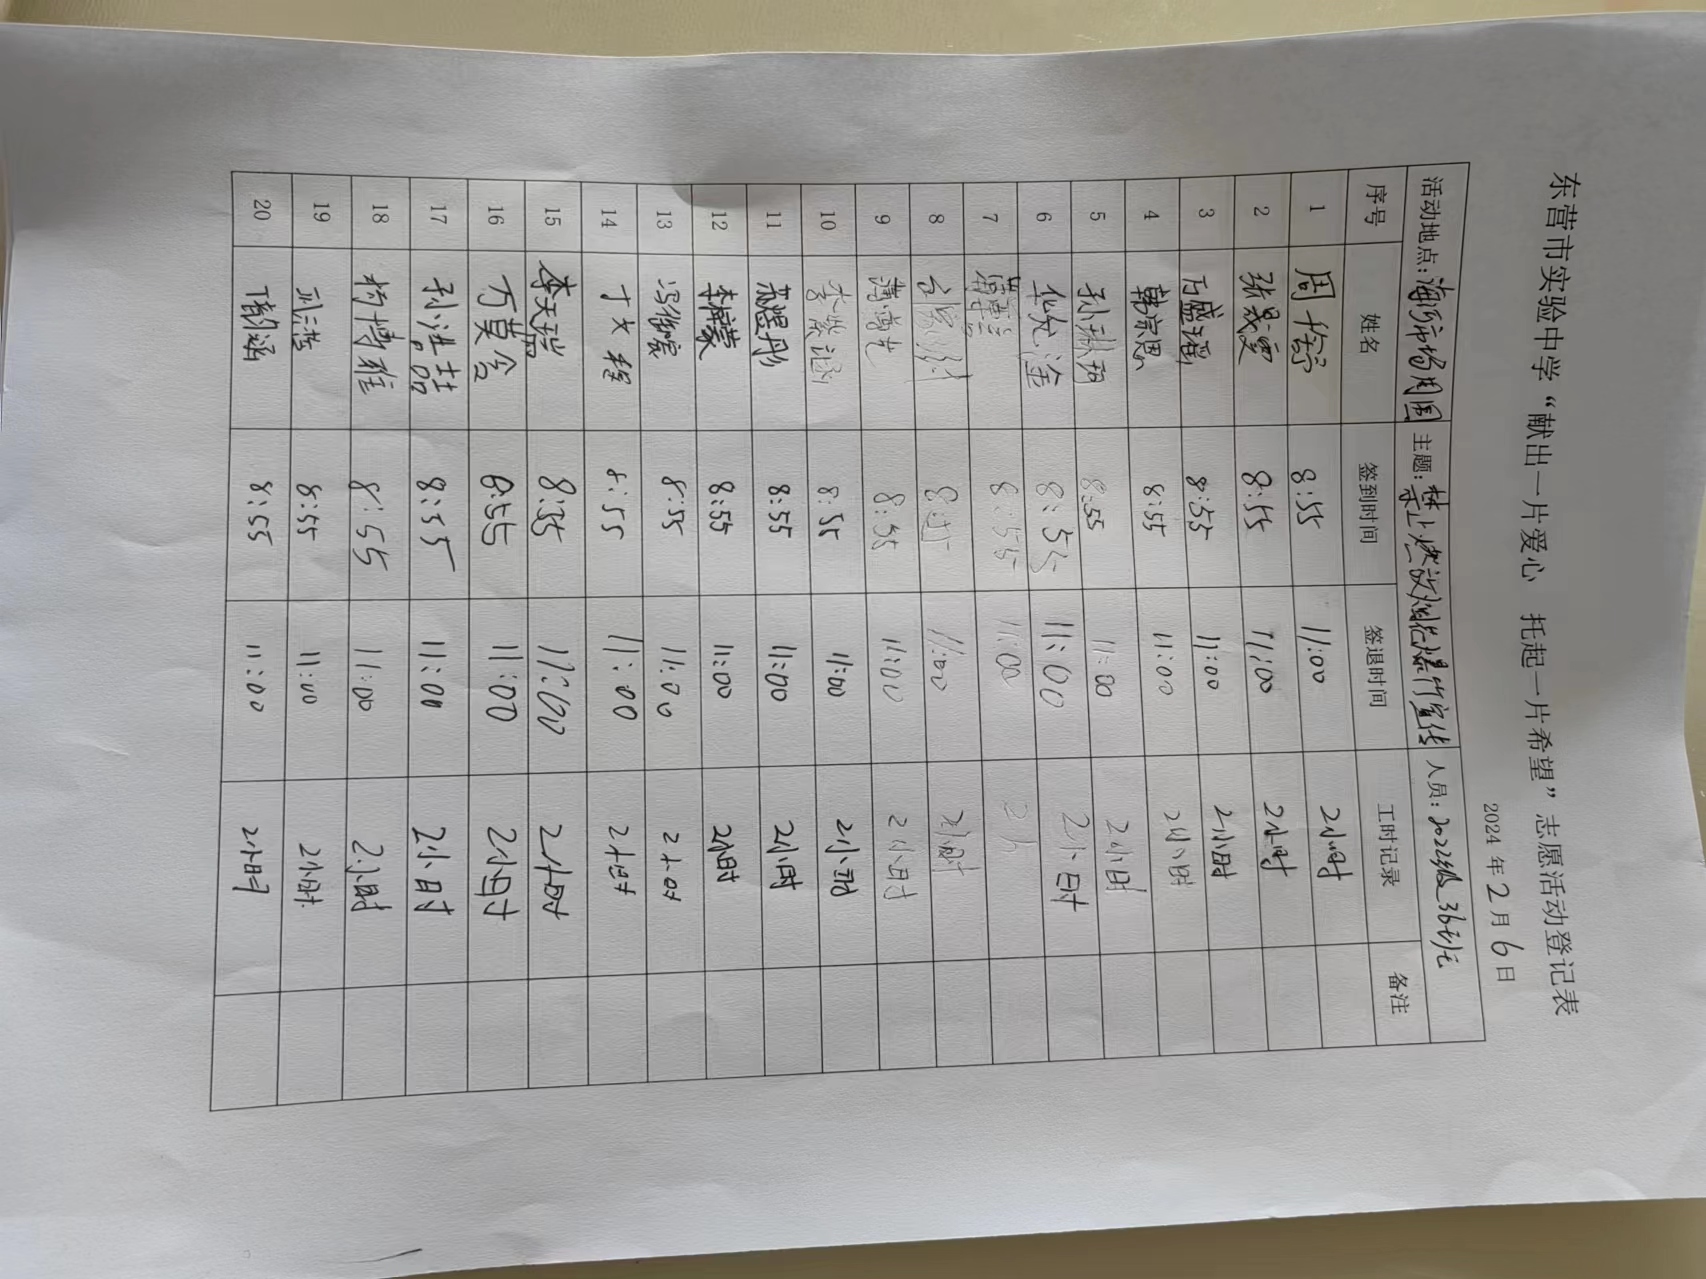 东营市实验中学“献出一片爱心 托起一片希望”志愿活动登记表
2024年2月6日
活动地点：海河市场周围 主题：禁止燃放烟花爆竹宣传 人员：2022级36班
序号 姓名 签到时间 签退时间 工时记录 备注
1 周 8:55 11:00 2小时
2 张晟雯 8:55 11:00 2小时
3 8:55 11:00 2小时
4 韩宗恩 8:55 11:00 2小时
5 孙琳玥 8:55 11:00 2小时
6 8:55 11:00 2小时
7 8:55 11:00
8 8:55 11:00 2小时
9 8:55 11:00 2小时
10 李 涵 8:55 11:00 2小时
11 苏煜彤 8:55 11:00 2小时
12 李 蒙 8:55 11:00 2小时
13 冯 8:55 11:00 2小时
14 丁文 8:55 11:00 2小时
15 李天瑞 8:55 11:00 2小时
16 万莫含 8:55 11:00 2小时
17 孙洪喆 8:55 11:00 2小时
18 杨博雅 8:55 11:00 2小时
19 8:55 11:00 2小时
20 涵 8:55 11:00 2小时